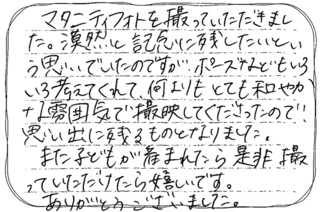 マタニティフォトを撮っていただきまし
た。漠然と記念に残したいとい
う思いでいたのですが、ポーズなどもいろ
いろ考えてくれて、何よりもとても和やか
な雰囲気で撮映してくださったので
思い出に残るものとなりました。
また子どもが産まれたら是非撮
っていただけたら嬉しいです。
ありがとうございました。